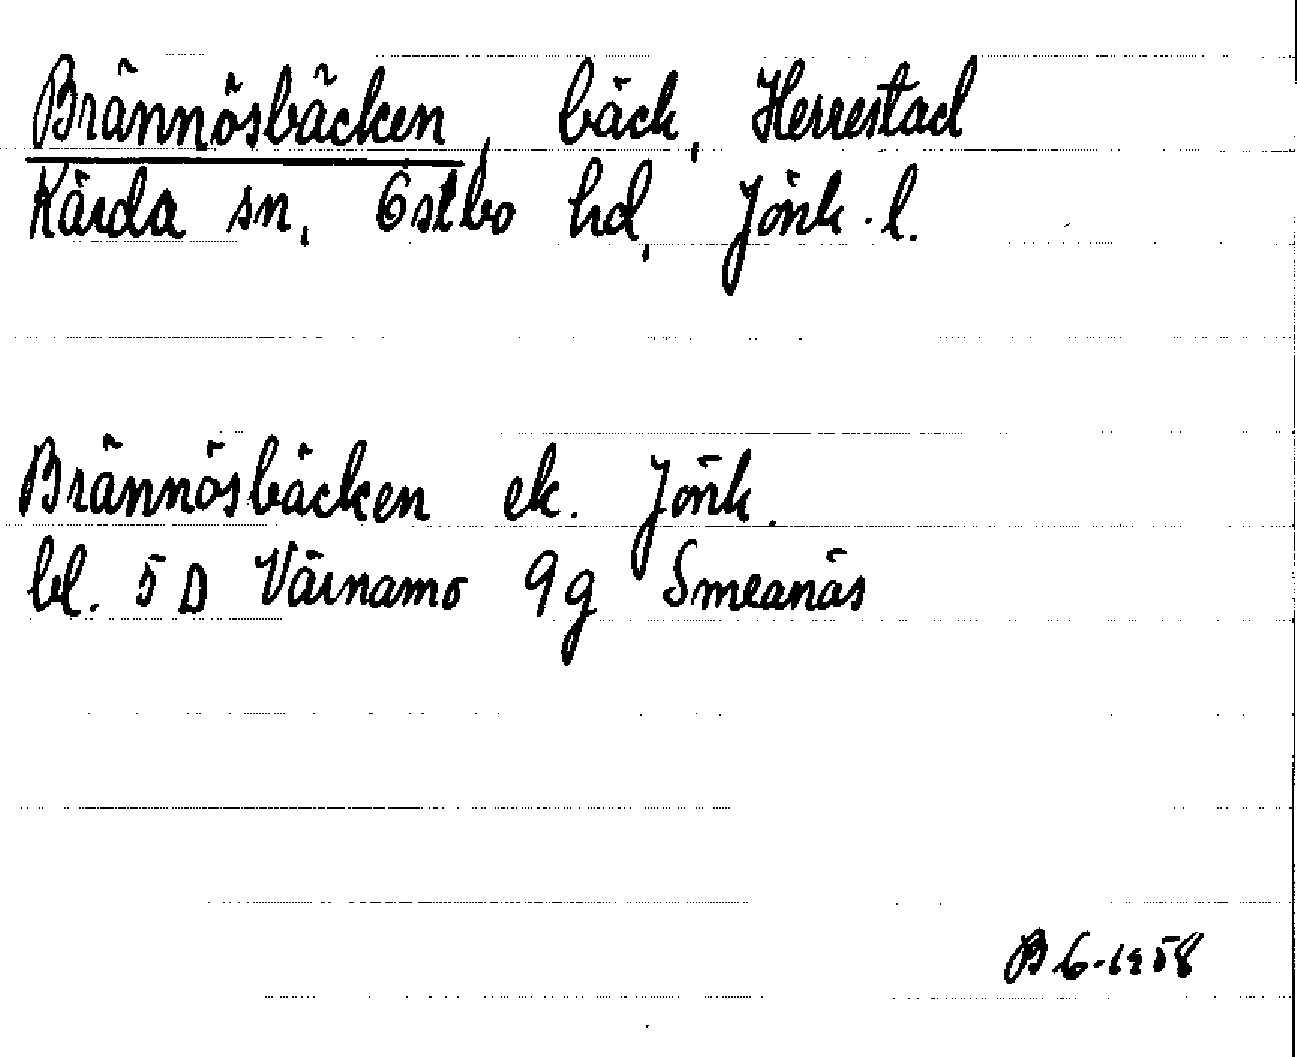 Brännösbäcken, bäck, Herrestad
Kärda sn, Östbo hd, Jönk. l.
Brännösbäcken ek. Jönk.
bl. 5 D Värnamo 9g Smeanäs
B G-1958